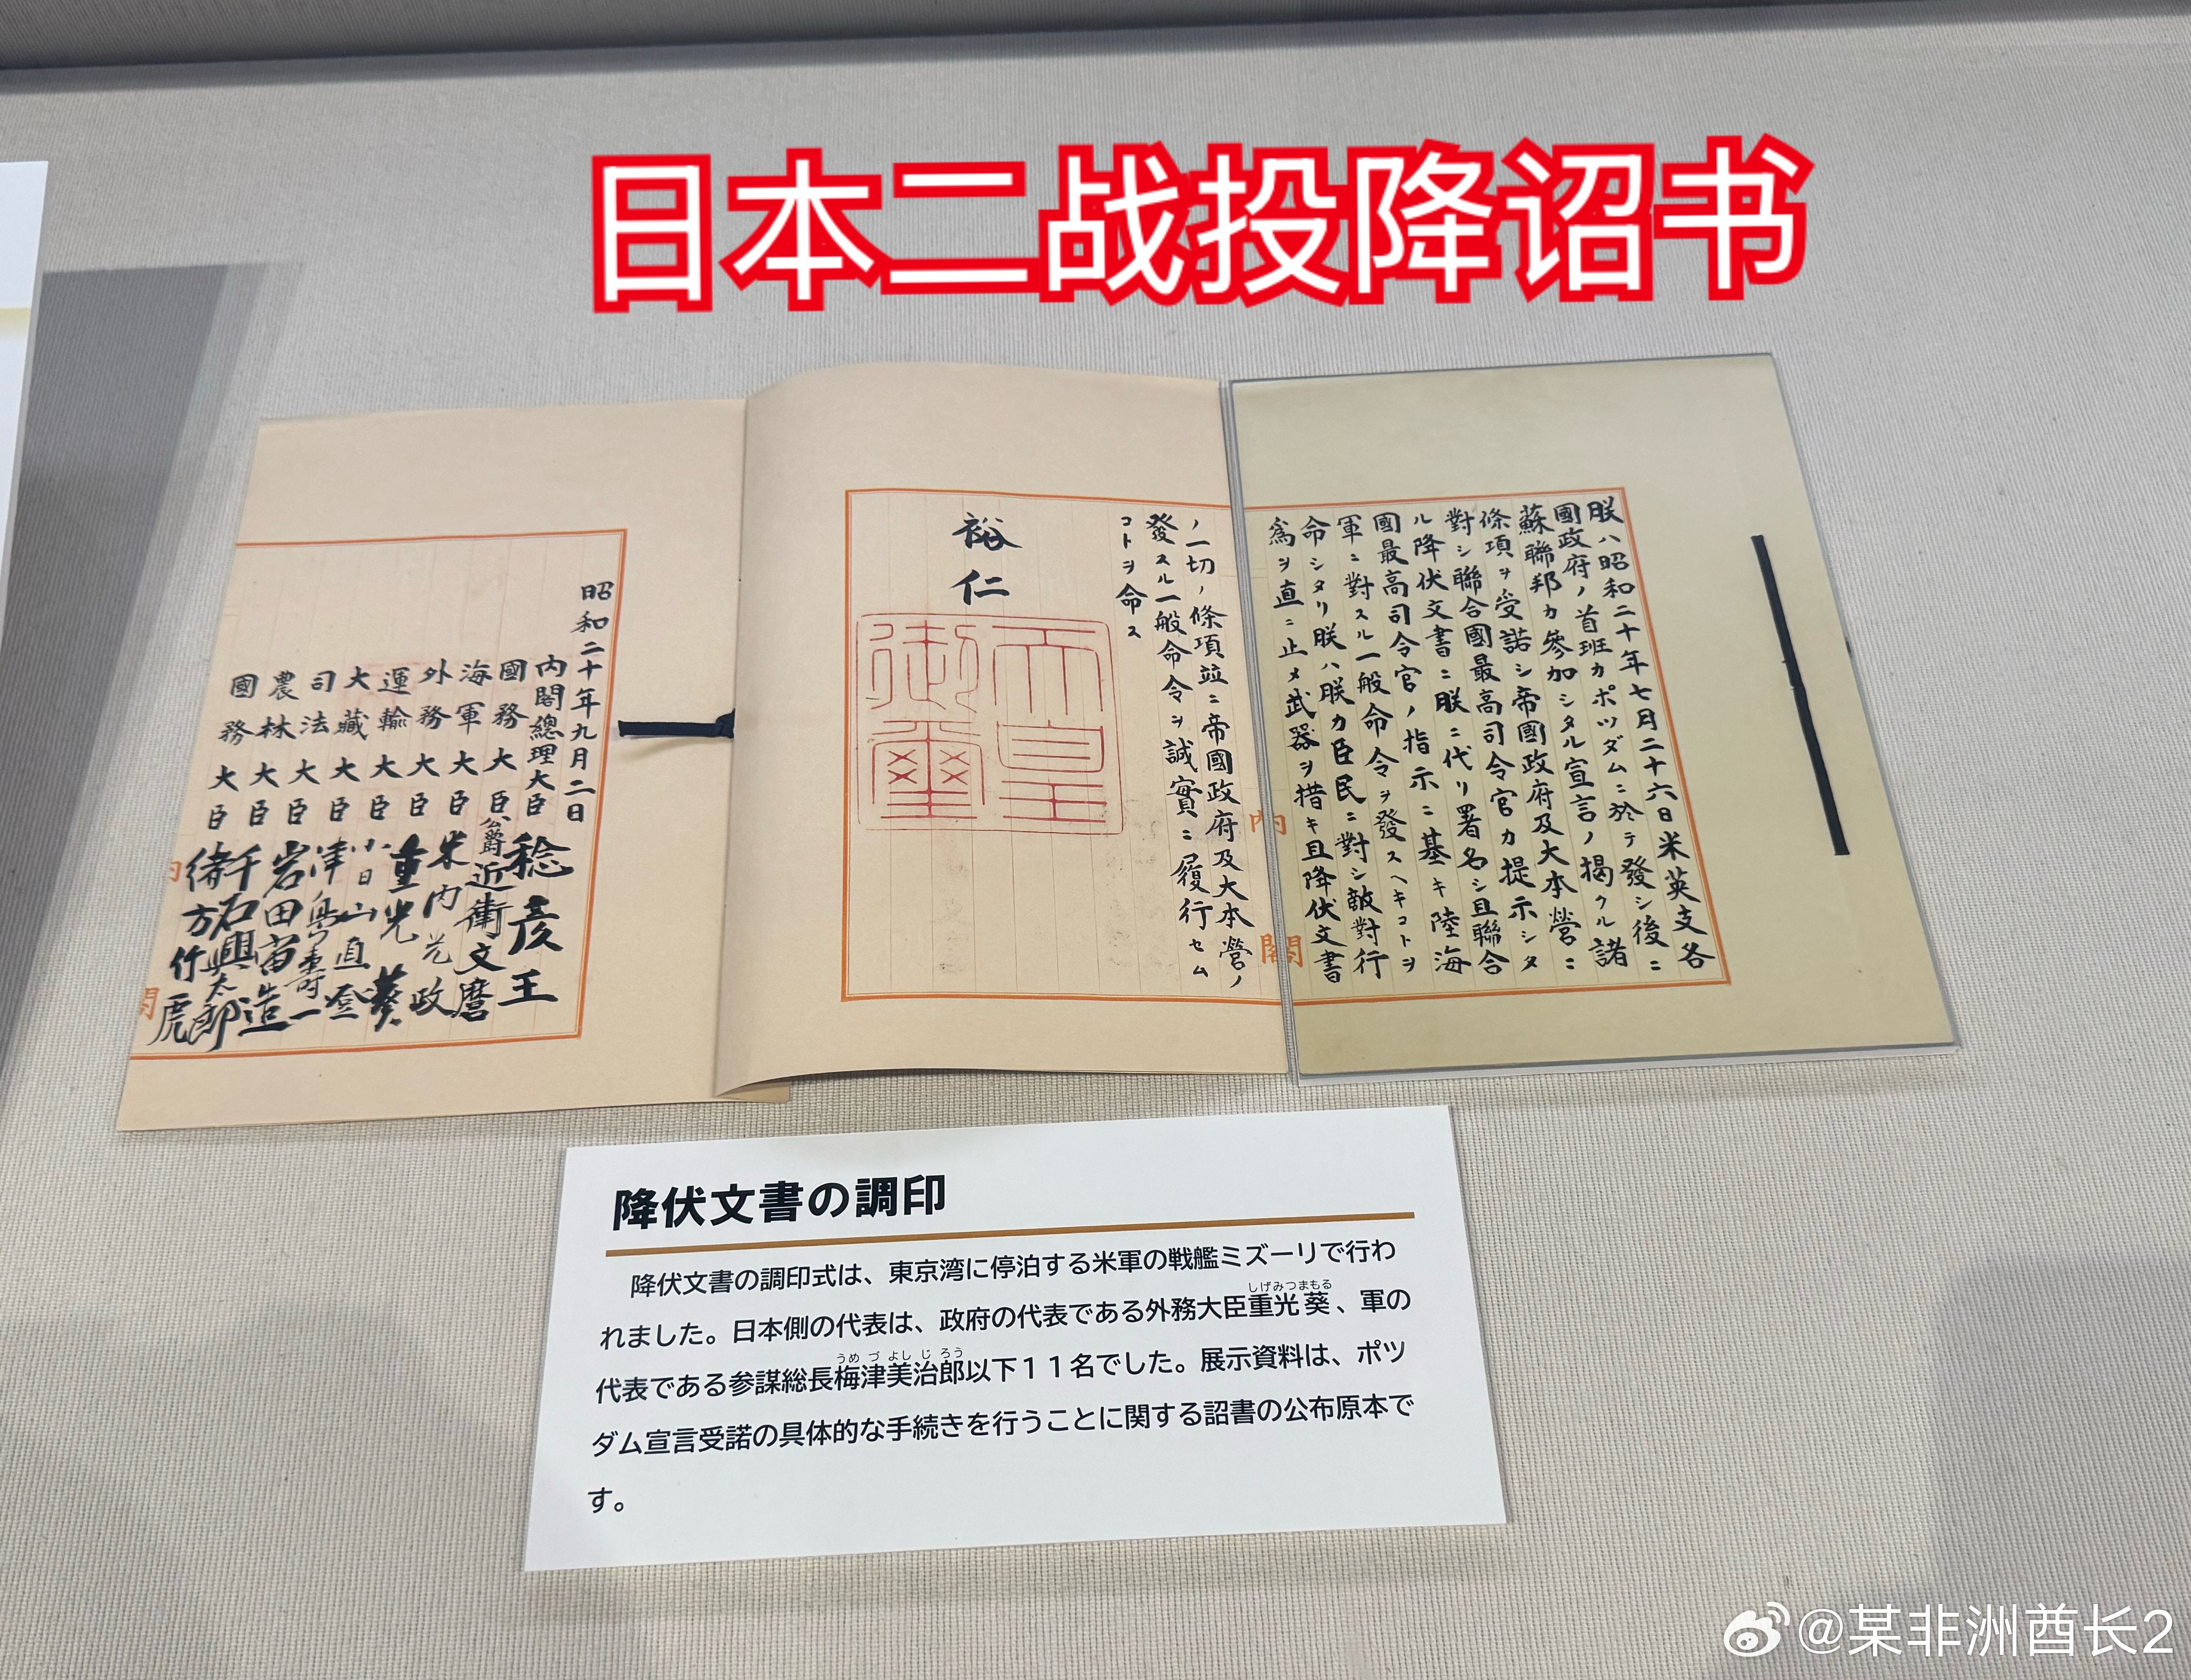 日本二战投降诏书
朕ハ昭和二十年七月二十六日米英支各
國政府ノ首班カポツダムニ於テ發シ後ニ
蘇聯邦カ參加シタル宣言ノ掲クル諸
條項ヲ受諾シ帝國政府及大本營ニ
對シ聯合國最高司令官カ提示シタ
ル降伏文書ニ朕ニ代リ署名シ且聯合
國最高司令官ノ指示ニ基キ陸海
軍ニ對スル一般命令ヲ發スヘキコトヲ
命シタリ朕ハ朕カ臣民ニ對シ敵對行
爲ヲ直ニ止メ武器ヲ措キ且降伏文書
ノ一切ノ條項竝ニ帝國政府及大本營ノ
發スル一般命令ヲ誠實ニ履行セム
コトヲ命ス
裕仁
天皇
御璽
内閣
昭和二十年九月二日
内閣總理大臣 稔彦王
國務大臣 公爵近衛文麿
海軍大臣 米内光政
外務大臣 重光葵
運輸大臣 小日山直登
大藏大臣 津島壽一
司法大臣 岩田宙造
農林大臣 千石興太郎
國務大臣 緒方竹虎
内閣
降伏文書の調印
降伏文書の調印式は、東京湾に停泊する米軍の戦艦ミズーリで行わ
しげみつまもる
れました。日本側の代表は、政府の代表である外務大臣重光葵、軍の
うめづよしじろう
代表である参謀総長梅津美治郎以下11名でした。展示資料は、ポツ
ダム宣言受諾の具体的な手続きを行うことに関する詔書の公布原本で
す。
@某非洲酋长2